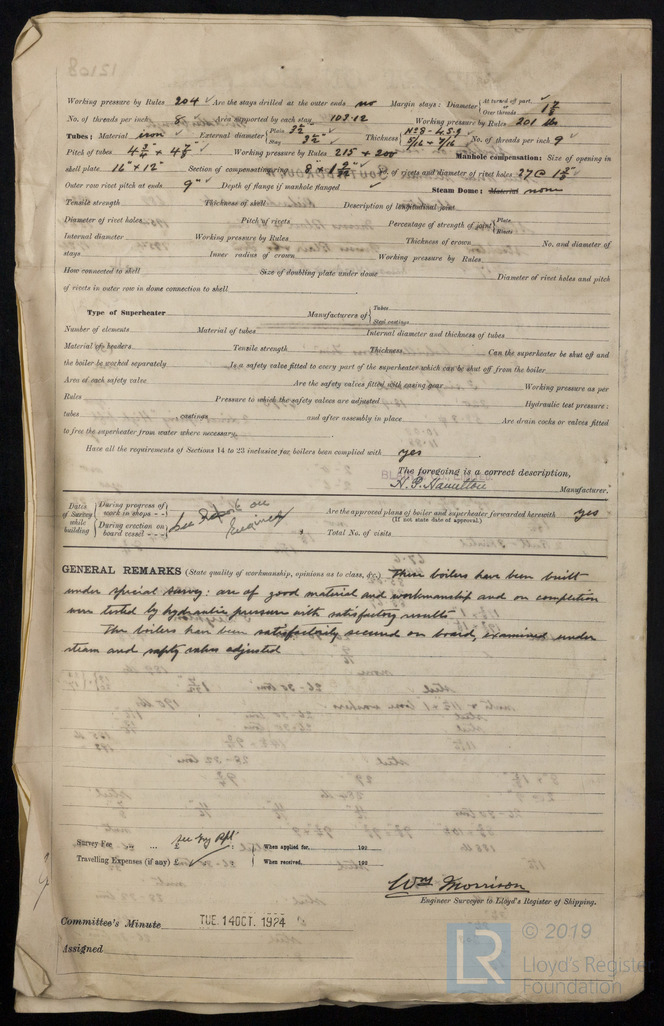 Working pressure by Rules 204 Are the stays drilled at the outer ends no Margin stays: Diameter {At turned off part, or Over threads 1 7/8
No. of threads per inch 8 Area supported by each stay 103.12 Working pressure by Rules 201 lbs
Tubes: Material iron External diameter {Plain 3½" Stay 3½" Thickness {No 8 - L.S.G 5/16 + 7/16 No. of threads per inch 9
Pitch of tubes 4¾ + 4⅞ Working pressure by Rules 215 + Manhole compensation: Size of opening in
shell plate 16" × 12" Section of compensating ring No. of rivets and diameter of rivet holes 27 @
Outer row rivet pitch at ends 9" Depth of flange if manhole flanged Steam Dome: Material none
Tensile strength Thickness of shell Description of longitudinal joint
Diameter of rivet holes Pitch of rivets Percentage of strength of joint {Plate Rivets
Internal diameter Working pressure by Rules Thickness of crown No. and diameter of
stays Inner radius of crown Working pressure by Rules
How connected to shell Size of doubling plate under dome Diameter of rivet holes and pitch
of rivets in outer row in dome connection to shell
Type of Superheater Manufacturers of {Tubes Steel castings
Number of elements Material of tubes Internal diameter and thickness of tubes
Material of headers Tensile strength Thickness Can the superheater be shut off and
the boiler be worked separately Is a safety valve fitted to every part of the superheater which can be shut off from the boiler
Area of each safety valve Are the safety valves fitted with easing gear Working pressure as per
Rules Pressure to which the safety valves are adjusted Hydraulic test pressure:
tubes castings and after assembly in place Are drain cocks or valves fitted
to free the superheater from water where necessary
Have all the requirements of Sections 14 to 23 inclusive for boilers been complied with yes
The foregoing is a correct description,
H. P. Hamilton Manufacturer.
Dates of Survey while building {During progress of work in shops - - {During erection on board vessel - - - See Report on Engines
Are the approved plans of boiler and superheater forwarded herewith yes
(If not state date of approval.)
Total No. of visits
GENERAL REMARKS (State quality of workmanship, opinions as to class, &c.) These boilers have been built
under special survey: are of good material and workmanship and on completion
were tested by hydraulic pressure with satisfactory results
The boilers have been satisfactorily secured on board, examined under
steam and safety valves adjusted
Survey Fee ... ... £ See Mry Rpt : When applied for, 192
Travelling Expenses (if any) £ : When received, 192
Wm Morrison
Engineer Surveyor to Lloyd's Register of Shipping.
Committee's Minute TUE. 14 OCT. 1924
Assigned
© 2019
LR Lloyd's Register
Foundation